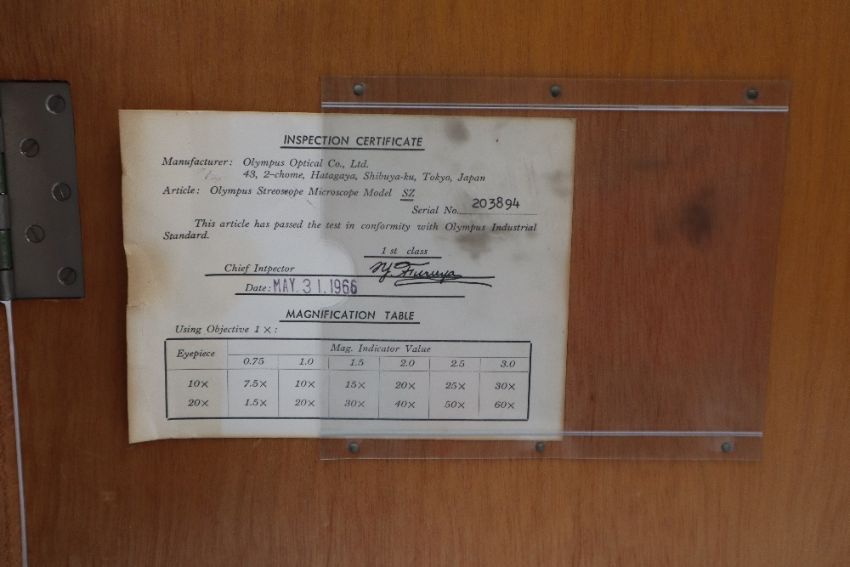 INSPECTION CERTIFICATE
Manufacturer: Olympus Optical Co., Ltd.
43, 2-chome, Hatagaya, Shibuya-ku, Tokyo, Japan
Article: Olympus Streoseope Microscope Model SZ
Serial No. 203894
This article has passed the test in conformity with Olympus Industrial
Standard.
1 st class
Chief Intpector Y. Furuya
Date: MAY. 31. 1966
MAGNIFICATION TABLE
Using Objective 1 ×:
Eyepiece Mag. Indicator Value
0.75 1.0 1.5 2.0 2.5 3.0
10× 7.5× 10× 15× 20× 25× 30×
20× 1.5× 20× 30× 40× 50× 60×